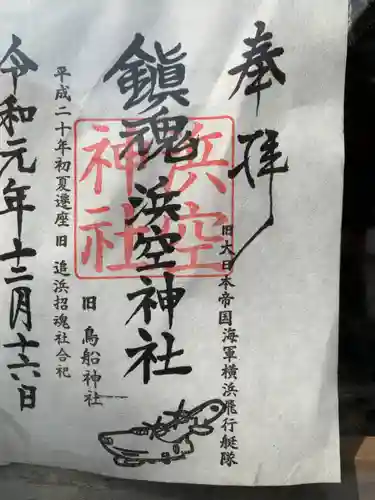 奉拝
旧大日本帝国海軍横浜飛行艇隊
浜空神社
鎮魂 浜空神社
旧 鳥船神社
平成二十年初夏遷座 旧 追浜招魂社合祀
令和元年十二月十六日